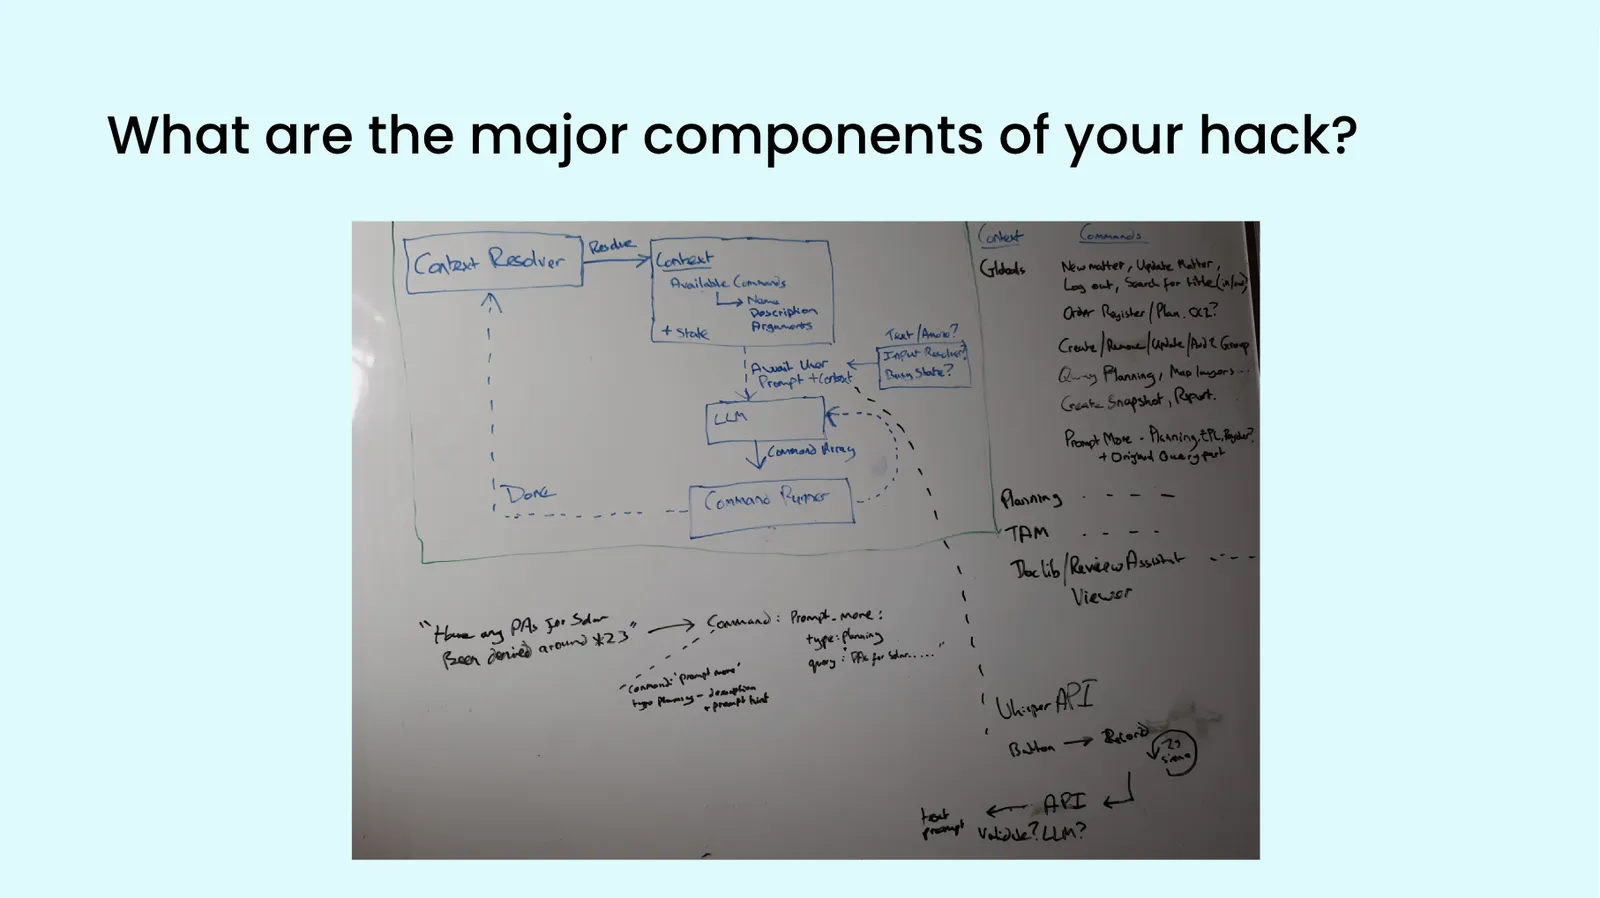 What are the major components of your hack?
Context Resolver
Resolve
Context
Available Commands
Name
Description
Arguments
+ State
Text/Audio?
Input Resolver?
Busy State?
Await User
Prompt + Context
LLM
Command Array
Command Runner
Done
Context
Commands
Globals
New matter, Update Matter,
Log out, Search for title
Order Register/Plan. OC2?
Create/Remove/Update/Add 2 Group
Query Planning, Map layers...
Create Snapshot, Report.
Prompt More - Planning,
+ Original Query part
Planning
TAM
Doclib/Review Assistant
Viewer
"Have any PAs for Solar
Been denied around *23"
Command: Prompt_more:
type: planning
query: PAs for Solar....."
"Command: 'prompt more'
type planning - description
+ prompt hint
Whisper API
Button
Record
2s
API
text
prompt
Validate? LLM?